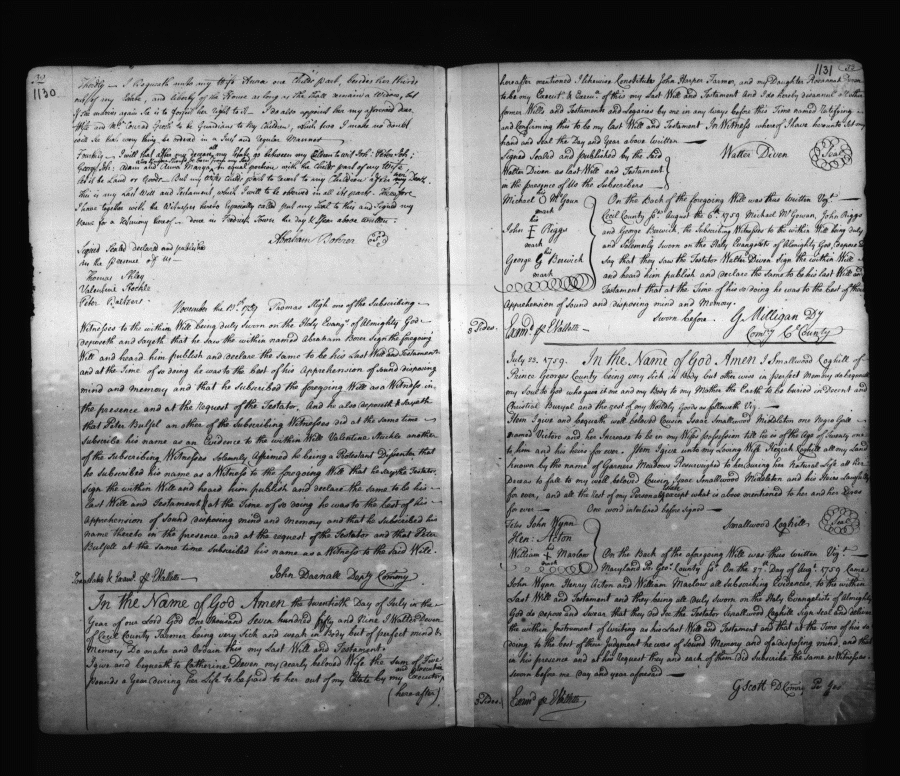 1130
Thirdly I Bequeath unto my Wife Anna one Child's part, besides her thirds
out of my Estate, and liberty of the House as long as she shall remain a Widow, but
if she marries again She is to forfeit her Right to it I do also appoint her my aforesaid dear
Wife and Mr. Conrad to be Guardians to my Children, which two I make no doubt
will see that every thing be ordered in a Just and Regular Manner
Fourthly I will that after my decease, my Estate go between my Children to wit
George Adam and Anna in equal portions with the Child's part of my Wife
let it be Land or Goods But my Wife's Child's part to revert to my Children after her Death
this is my Last Will and Testament which I will to be observed in all its parts. Therefore
I have together with the Witnesses hereto separately called put my Seal to this and Signed my
Name for a Testimony hereof done in Frederick Town the day & Year above written
Signed Sealed declared and published
in the Presence of us
Abraham Bohrer
Thomas Sligh
Valentine
Peter
November the 12th 1759 Thomas Sligh one of the Subscribing
Witnesses to the within Will being duly Sworn on the Holy Evangs of Almighty God
deposeth and Sayeth that he saw the within named Abraham Borer Sign the foregoing
Will and heard him publish and declare the same to be his Last Will and Testament
and at the Time of so doing he was to the best of his Apprehension of Sound disposing
mind and memory and that he Subscribed the foregoing Will as a Witness in
the presence and at the Request of the Testator. And he also deposeth & Sayeth
that Peter Bulsel an other of the Subscribing Witnesses did at the same time
Subscribe his name as an Evidence to the within Will Valentine another
of the Subscribing Witnesses Solemnly Affirmed he being a Protestant Dissenter that
he Subscribed his name as a Witness to the foregoing Will that he Saw the Testator
Sign the within Will and heard him publish and declare the same to be his
Last Will and Testament that at the Time of so doing he was to the best of his
Apprehension of Sound disposing mind and Memory and that he Subscribed his
name thereto in the presence and at the request of the Testator and that Peter
Bulsell at the same time Subscribed his name as a Witness to the Said Will.
Translated & Examd. John Darnall Depty Commry
In the Name of God Amen the twentieth Day of July in the
Year of our Lord God One thousand Seven hundred fifty and Nine I Walter Deven
of Cecil County Farmer being very Sick and weak in Body but of perfect mind &
Memory Do make and Ordain this my Last Will and Testament.
I give and bequeath to Catherine Deven my dearly beloved Wife the Sum of Five
pounds a Year during her Life to be paid to her out of my Estate by my Executors
(hereafter)
1131
hereafter mentioned I likewise Constitute John Harper Farmer, and my Daughter
to be my Executr & Execux of this my Last Will and Testament and I do hereby disannul all other
former Wills and Testaments and Legacies by me in any ways before this Time named Ratifying
and Confirming this to be my last Will and Testament In Witness whereof I have hereunto Set my
hand and Seal the Day and Year above written
Signed Sealed and published by the said
Walter Deven as last Will and Testament
in the presence of Us the Subscribers
Walter Deven
Seal
Michael O McGown
his
mark
John F Riggs
his
mark
George G Berwick
mark
On the Back of the foregoing Will was thus written Vizt
Cecil County Sst August the 6th 1759 Michael McGowan, John Riggs
and George Berwick, the Subscribing Witnesses to the within Will being duly
and Solemnly Sworn on the Holy Evangelists of Almighty God, depose and
Say that they saw the Testator Walter Deven Sign the within Will
and heard him publish and declare the same to be his last Will and
Testament that at the Time of his so doing he was to the best of their
Apprehension of Sound and disposing mind and Memory.
Sworn before G Milligan Dy
Comry Cl County
3 Sides.
Examd
July 23. 1759. In the Name of God Amen I Smallwood Coghill of
Prince Georges County being very Sick in Body but other wise in perfect Memory do bequeath
my Soul to God who gave it me and my Body to my Mother the Earth to be buried in Decent and
Christial Buryal and the rest of my Worldly Goods as followeth Viz.
Item I give and bequeath well beloved Cousin Isaac Smallwood Middleton one Negro Girl
named Vertice and her Increase to be in my Wifes possession till he is of the Age of Twenty one
to him and his heirs for ever. Item I give unto my Loving Wife Keziah Coghill all my Land
known by the name of Garners Meadows during her Natural Life all her
Deceas to fall to my well beloved Cousin Isaac Smallwood Middleton and his Heirs Lawfully
for ever, and all the Rest of my Personal Estate except what is above mentioned to her and her Heirs
for ever One word interlined before Signed
Smallwood Coghill
Seal
Tests John Wynn
Hen: Acton
William Marlow
his
mark
On the Back of the aforegoing Will was thus written Vizt
Maryland Pr. Geos. County Sst. On the 27th Day of Augt. 1759 Came
John Wynn Henry Acton and William Marlow all Subscribing Evidences to the within
Last Will and Testament and they being all duly Sworn on the Holy Evangelists of Almighty
God do depose and Swear that they did see the Testator Smallwood Coghill Sign Seal and deliver
the within Instrument of writing as his Last Will and Testament and that at the Time of his so
doing to the best of their Judgment he was of Sound Memory and of a disposing mind, and that
in his presence and at his Request they and each of them did Subscribe the same as Witnesses
Sworn before me Day and year aforesaid
G Scott D. Comry Pr Geo
3 Sides.
Examd